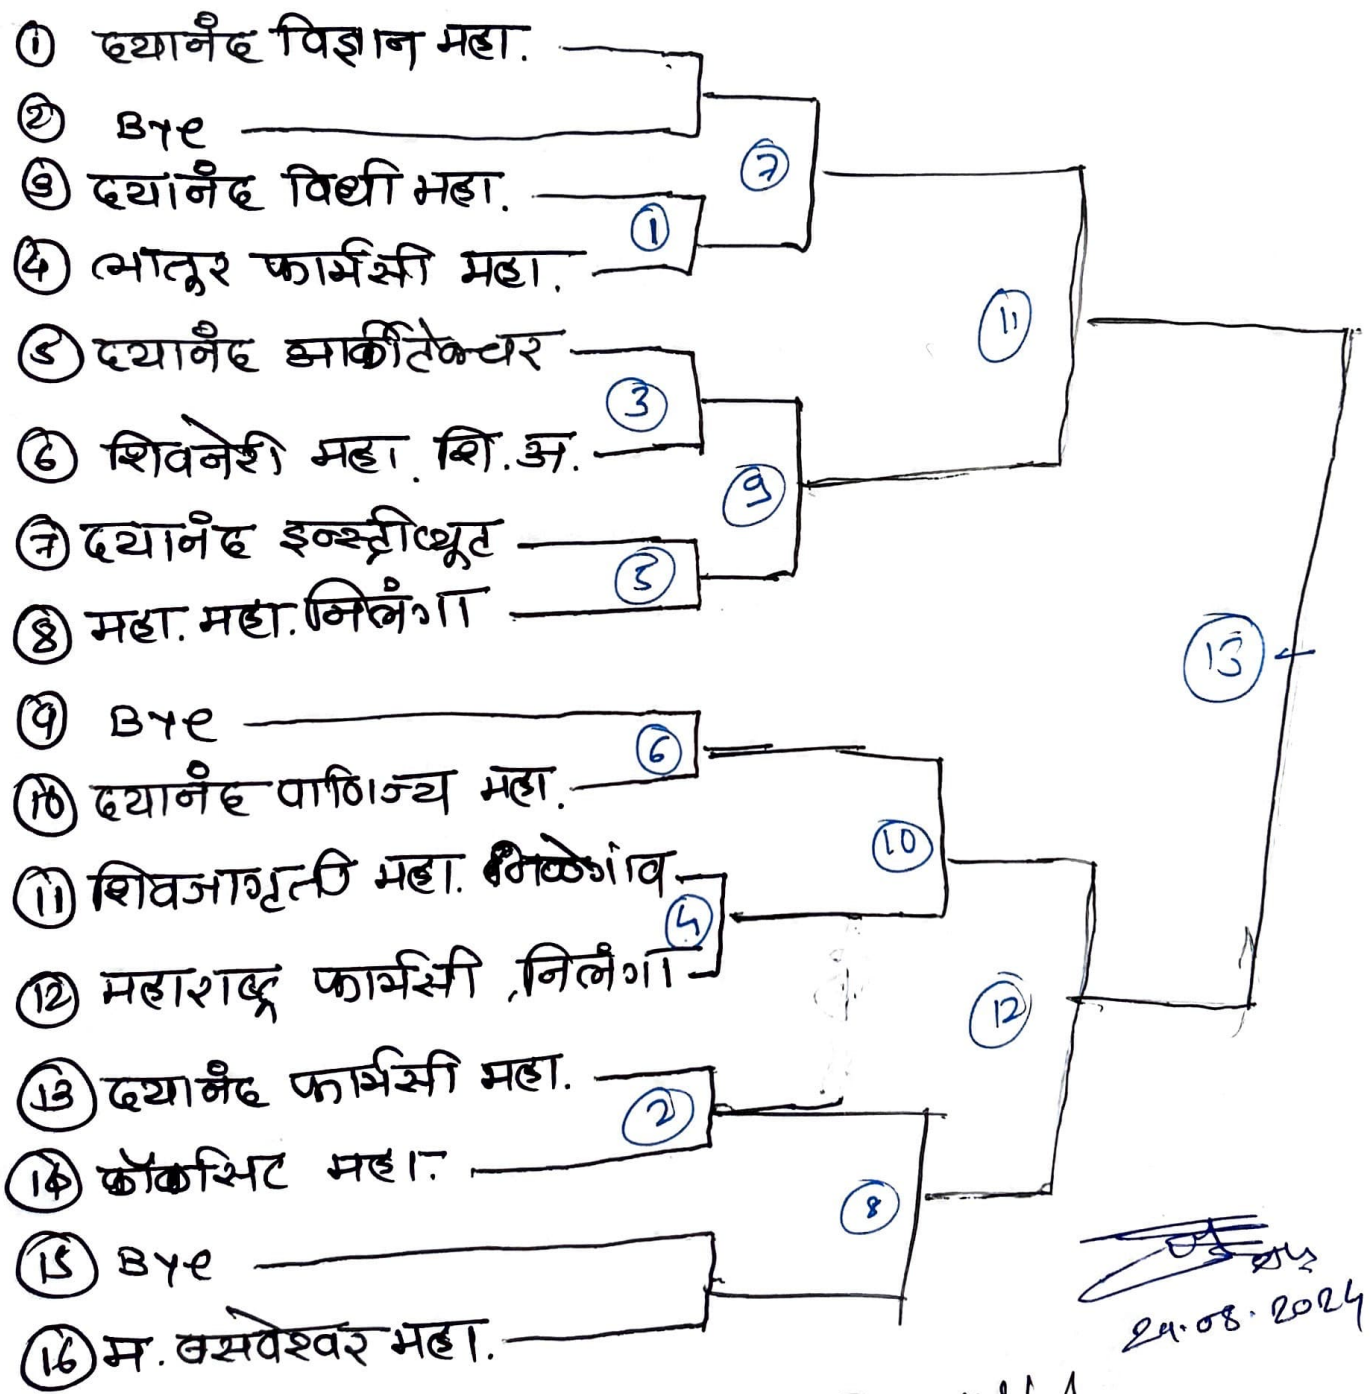 ① दयानंद विज्ञान महा.
② Bye
③ दयानंद विधी महा.
④ लातूर फार्मसी महा.
⑤ दयानंद आर्कीटेक्चर
⑥ शिवनेरी महा. शि.अ.
⑦ दयानंद इन्स्ट्रीट्यूट
⑧ महा. महा. निलंगा
⑨ Bye
⑩ दयानंद वाणिज्य महा.
⑪ शिवजागृती महा. नळेगांव
⑫ महाराष्ट्र फार्मसी, निलंगा
⑬ दयानंद फार्मसी महा.
⑭ कॉकसिट महा.
⑮ Bye
⑯ म. बसवेश्वर महा.
⑦
①
③
⑨
⑤
⑪
⑬
⑥
⑩
④
⑫
②
⑧
29.08.2024